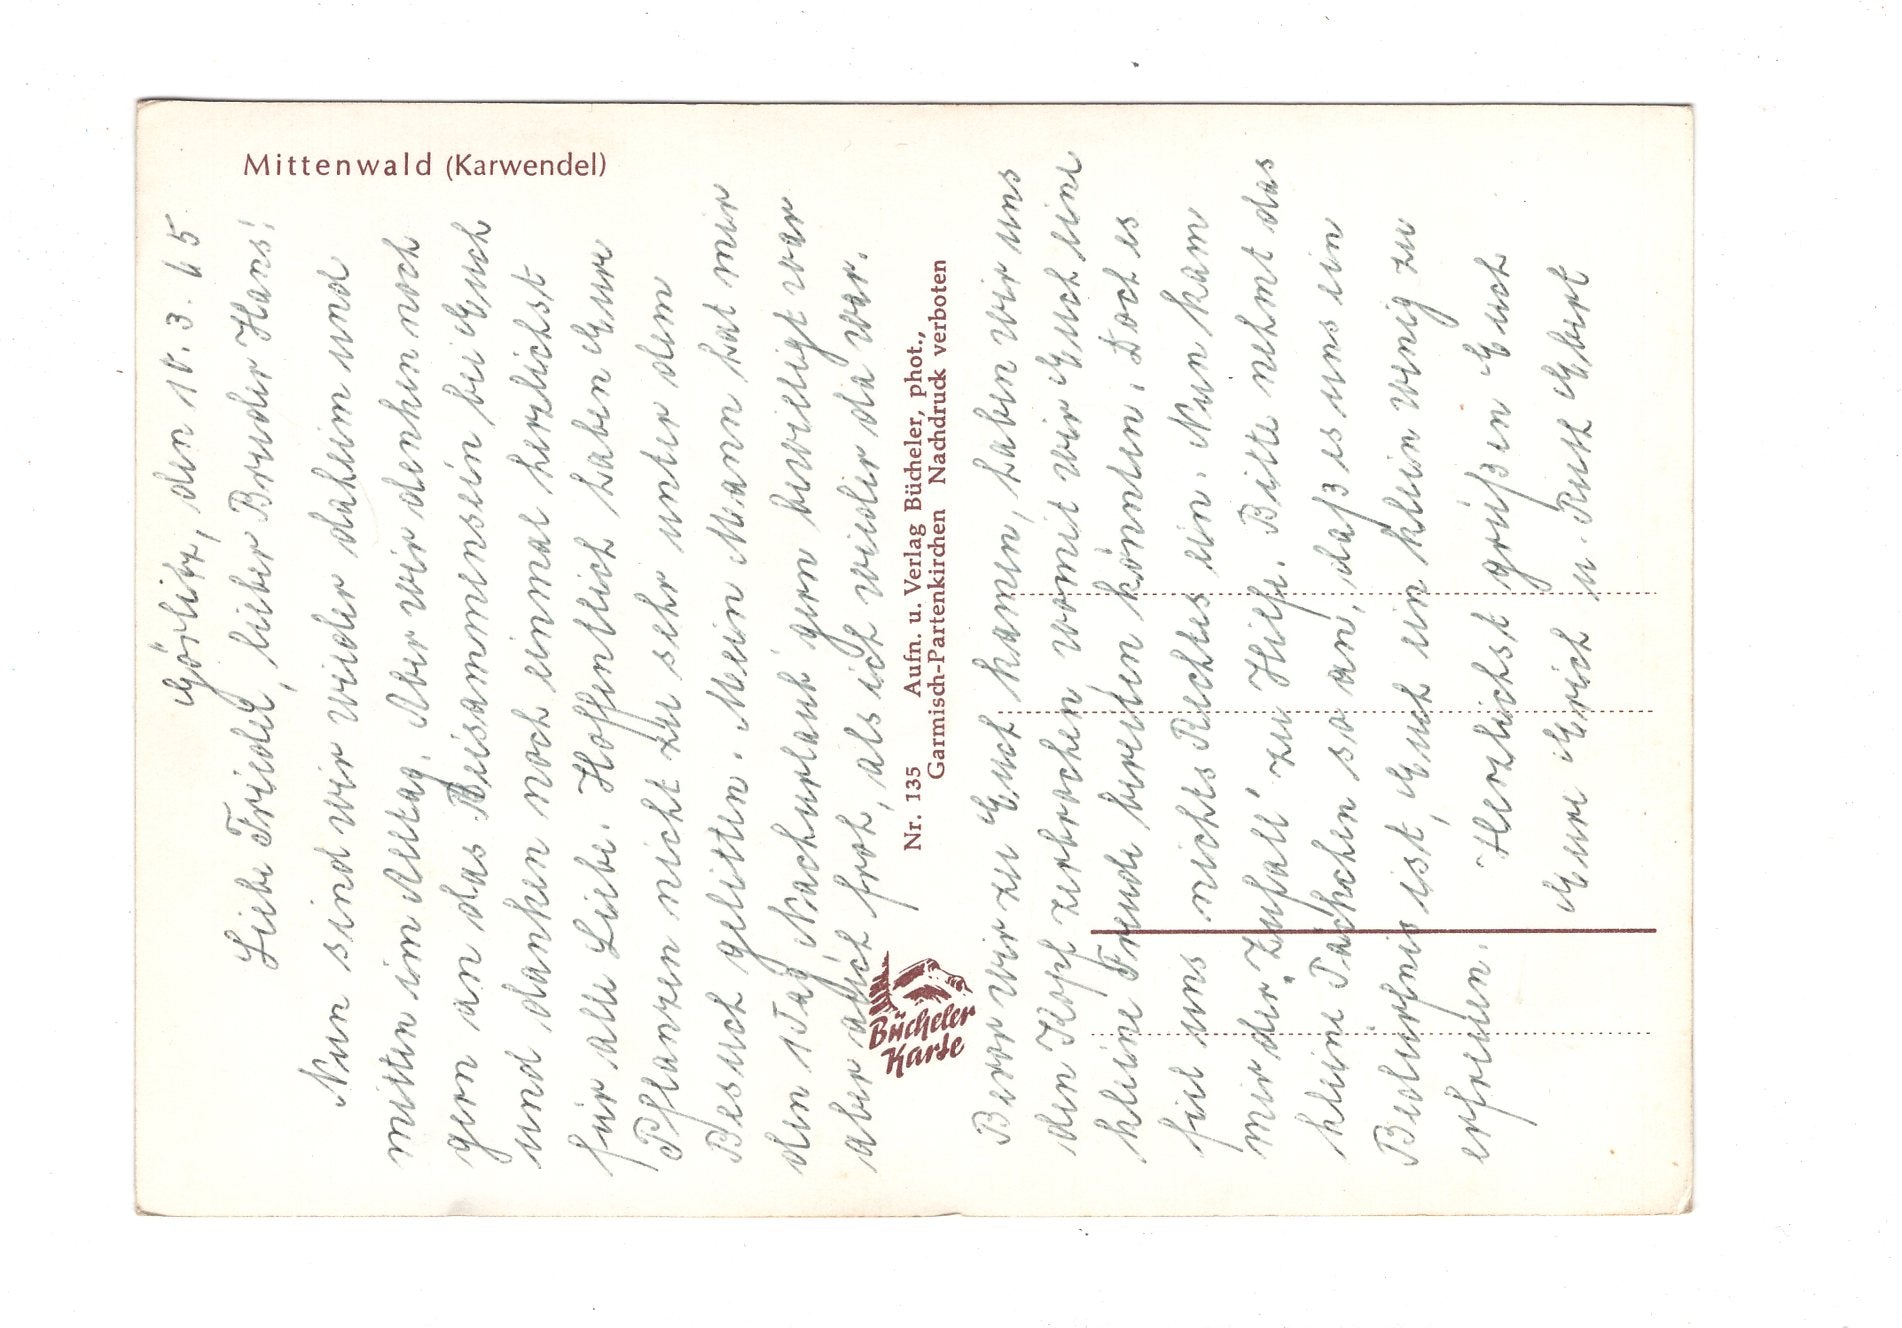 Mittenwald (Karwendel)
Görlitz, den 10. 3. 65
Liebe Friedel, lieber Bruder Hans!
Nun sind wir wieder daheim und
mitten im Alltag. Aber wir denken noch
gern an das Beisammensein bei Euch
und danken noch einmal herzlichst
für alle Liebe. Hoffentlich haben Eure
Pflanzen nicht zu sehr unter dem
Besuch gelitten. Mein Mann hat mir
den 1 Tag Nachurlaub gern bewilligt war
aber auch froh, als ich wieder da war.
Nr. 135 Aufn. u. Verlag Bücheler, phot.,
Garmisch-Partenkirchen Nachdruck verboten
Bücheler
Karte
Bevor wir zu Euch kamen, haben wir uns
den Kopf zerbrochen womit wir Euch eine
kleine Freude bereiten könnten. Doch es
fiel uns nichts Rechtes ein. Nun kam
mir der "Zufall" zu Hilfe. Bitte nehmt das
kleine Päckchen so an, daß es uns ein
Bedürfnis ist, Euch ein klein wenig zu
erfreuen.
Herzlichst grüßen Euch
Eure Erich u. Ruth Ebert